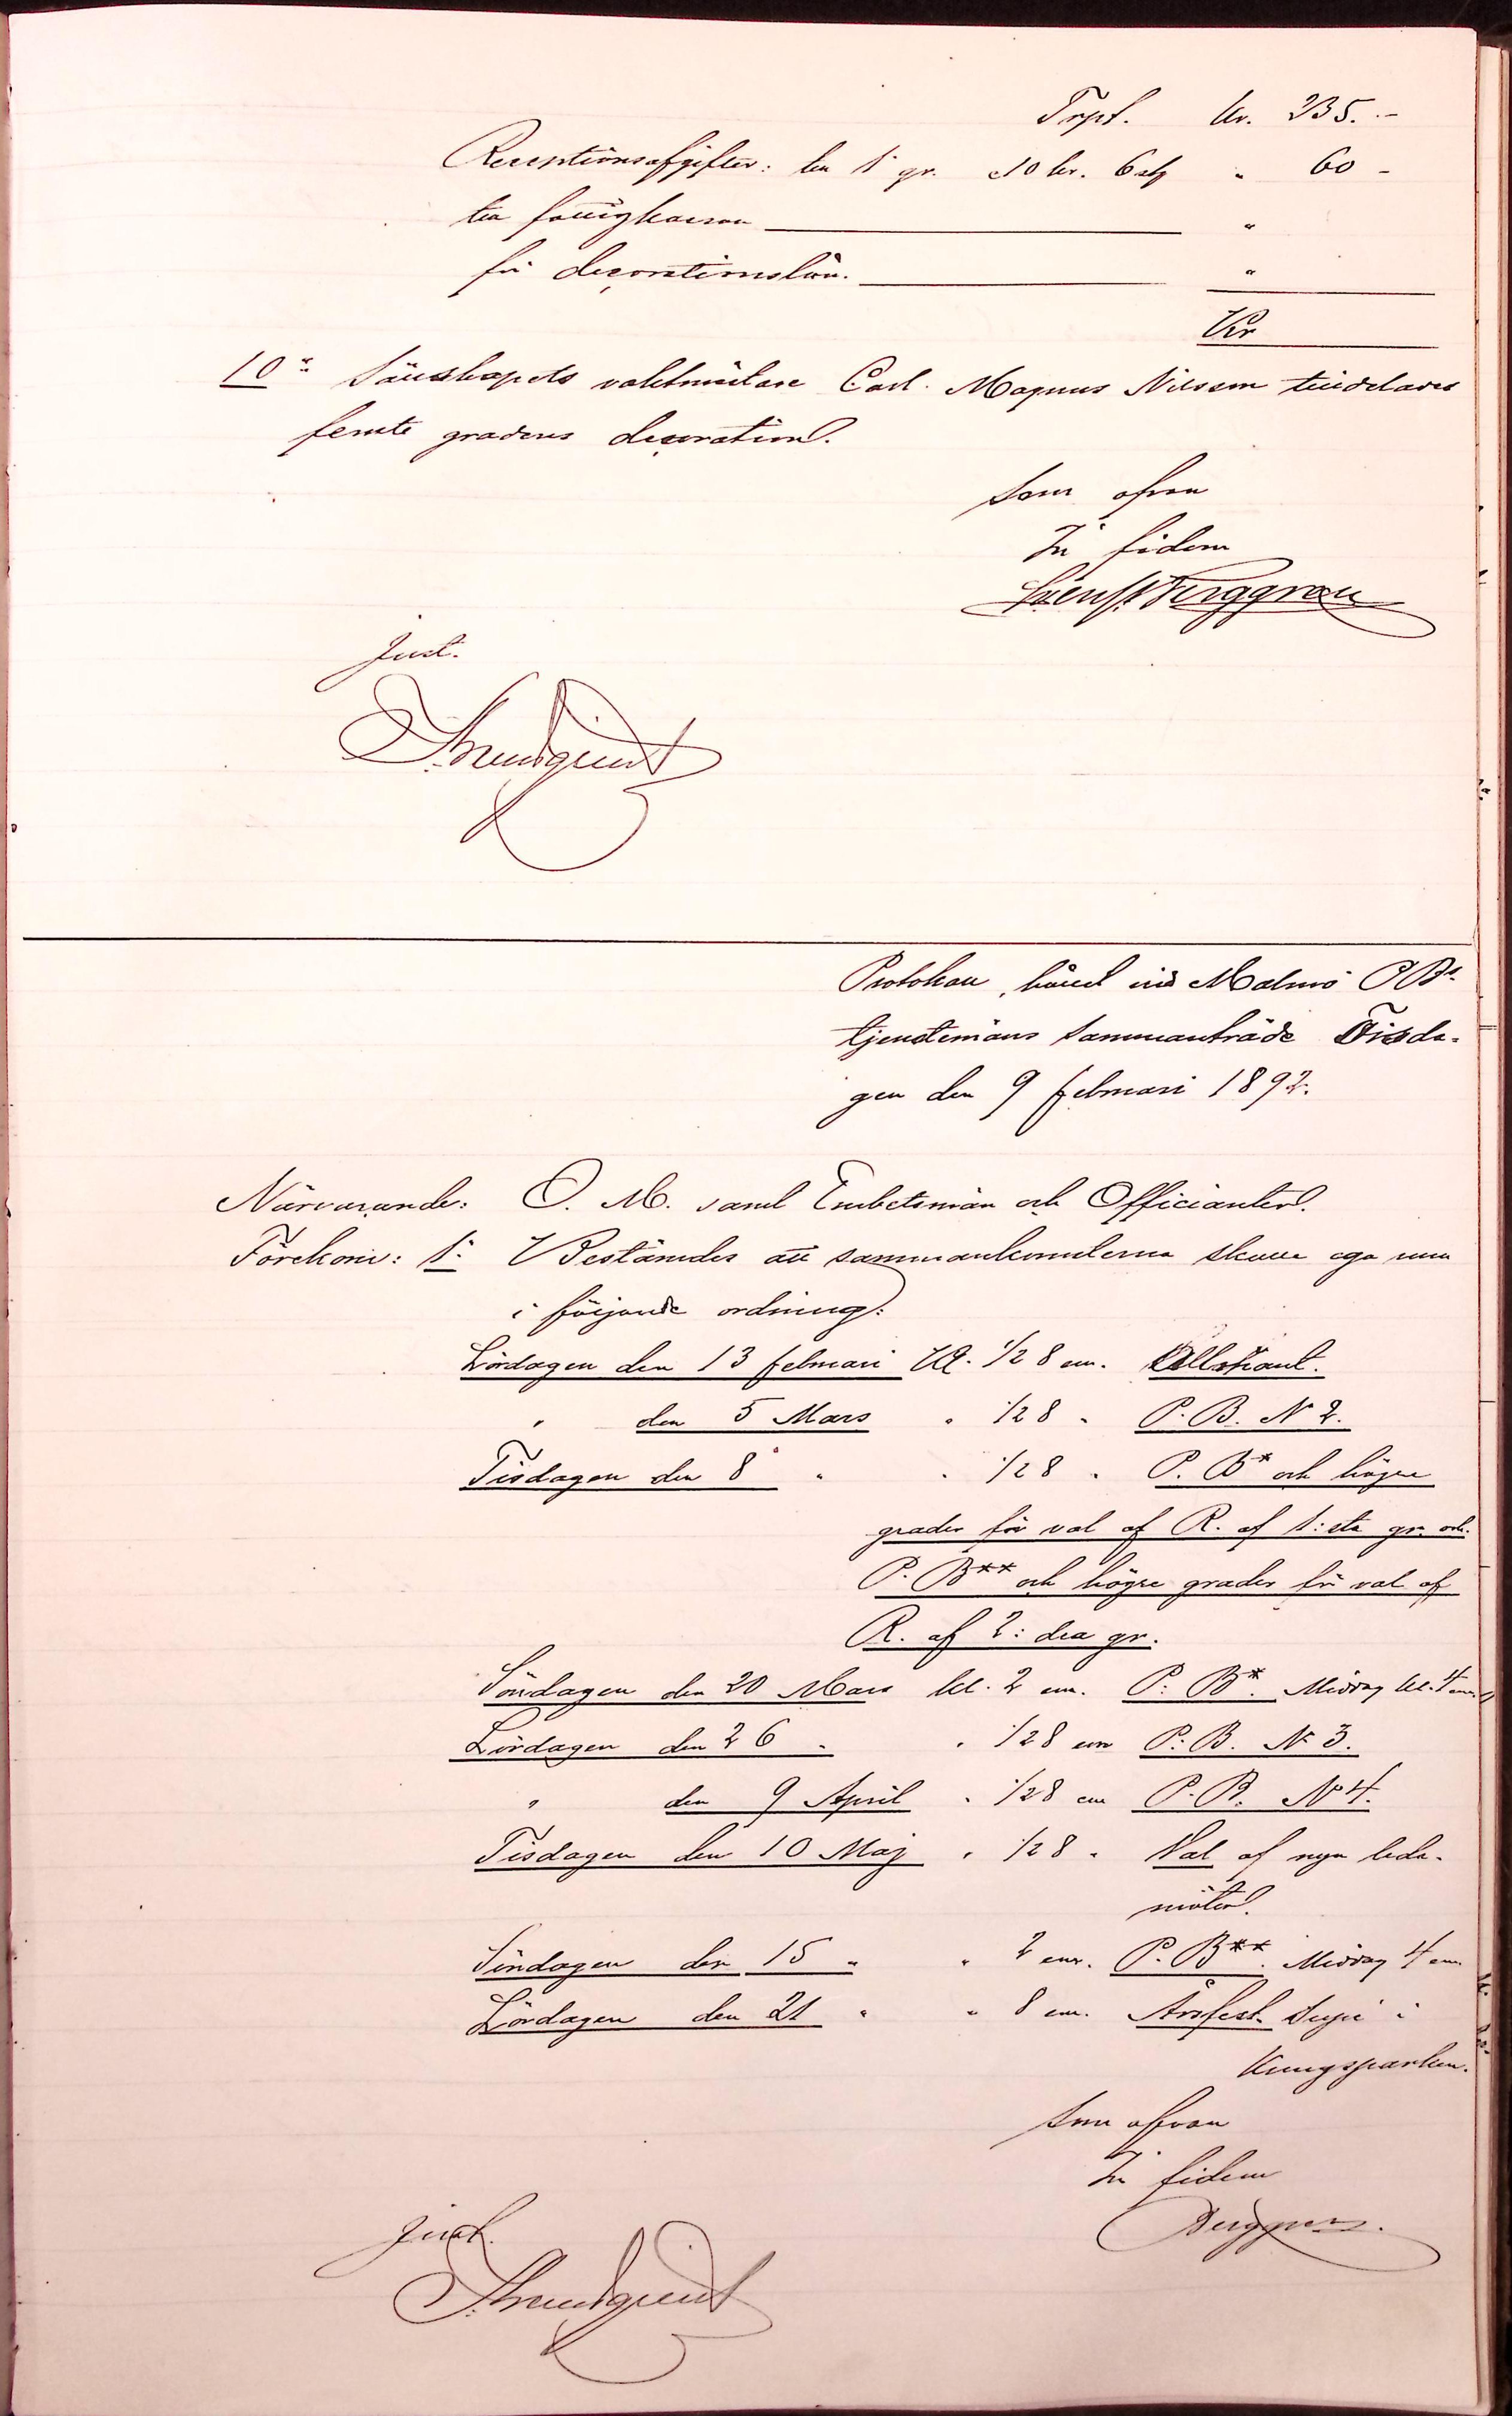 Trpt. Kr. 235.-
Receptionsafgifter: till 1 gr. 10 kr. 6 st " 60 -
till fattigkassan "
för decorationslån. "
Kr
10° Sällskapets vaktmästare Carl Magnus Nilsson tilldelades
femte gradens decoration.
Som ofvan
In fidem
Berggren
Just.
Protokoll, hållet vid Malmö P B:s
tjenstemäns sammanträde Tisda-
gen den 9 februari 1892.
Närvarande: O. M. samt Embetsmän och Officianter.
Förekom: 1° Bestämdes att sammankomsterna skulle ega rum
i följande ordning:
Lördagen den 13 februari Kl. 1/2 8 em.
" den 5 Mars " 1/2 8 " P. B. N 2.
Tisdagen den 8 " " 1/2 8 " P. B* och högre
grader för val af R. af 1:sta gr. och
P. B** och högre grader för val af
R. af 2:dra gr.
Söndagen den 20 Mars kl. 2 em. P. B*. Middag kl. 4 em.
Lördagen den 26 " " 1/2 8 em P. B. N 3.
" den 9 April " 1/2 8 em P. B. N 4.
Tisdagen den 10 Maj " 1/2 8 " Val af nya leda-
möter.
Söndagen den 15 " " 2 em. P. B**. Middag 4 em
Lördagen den 21 " " 8 em. Årsfest. Supé i
Kungsparken.
Som ofvan
In fidem
Berggren.
Just.